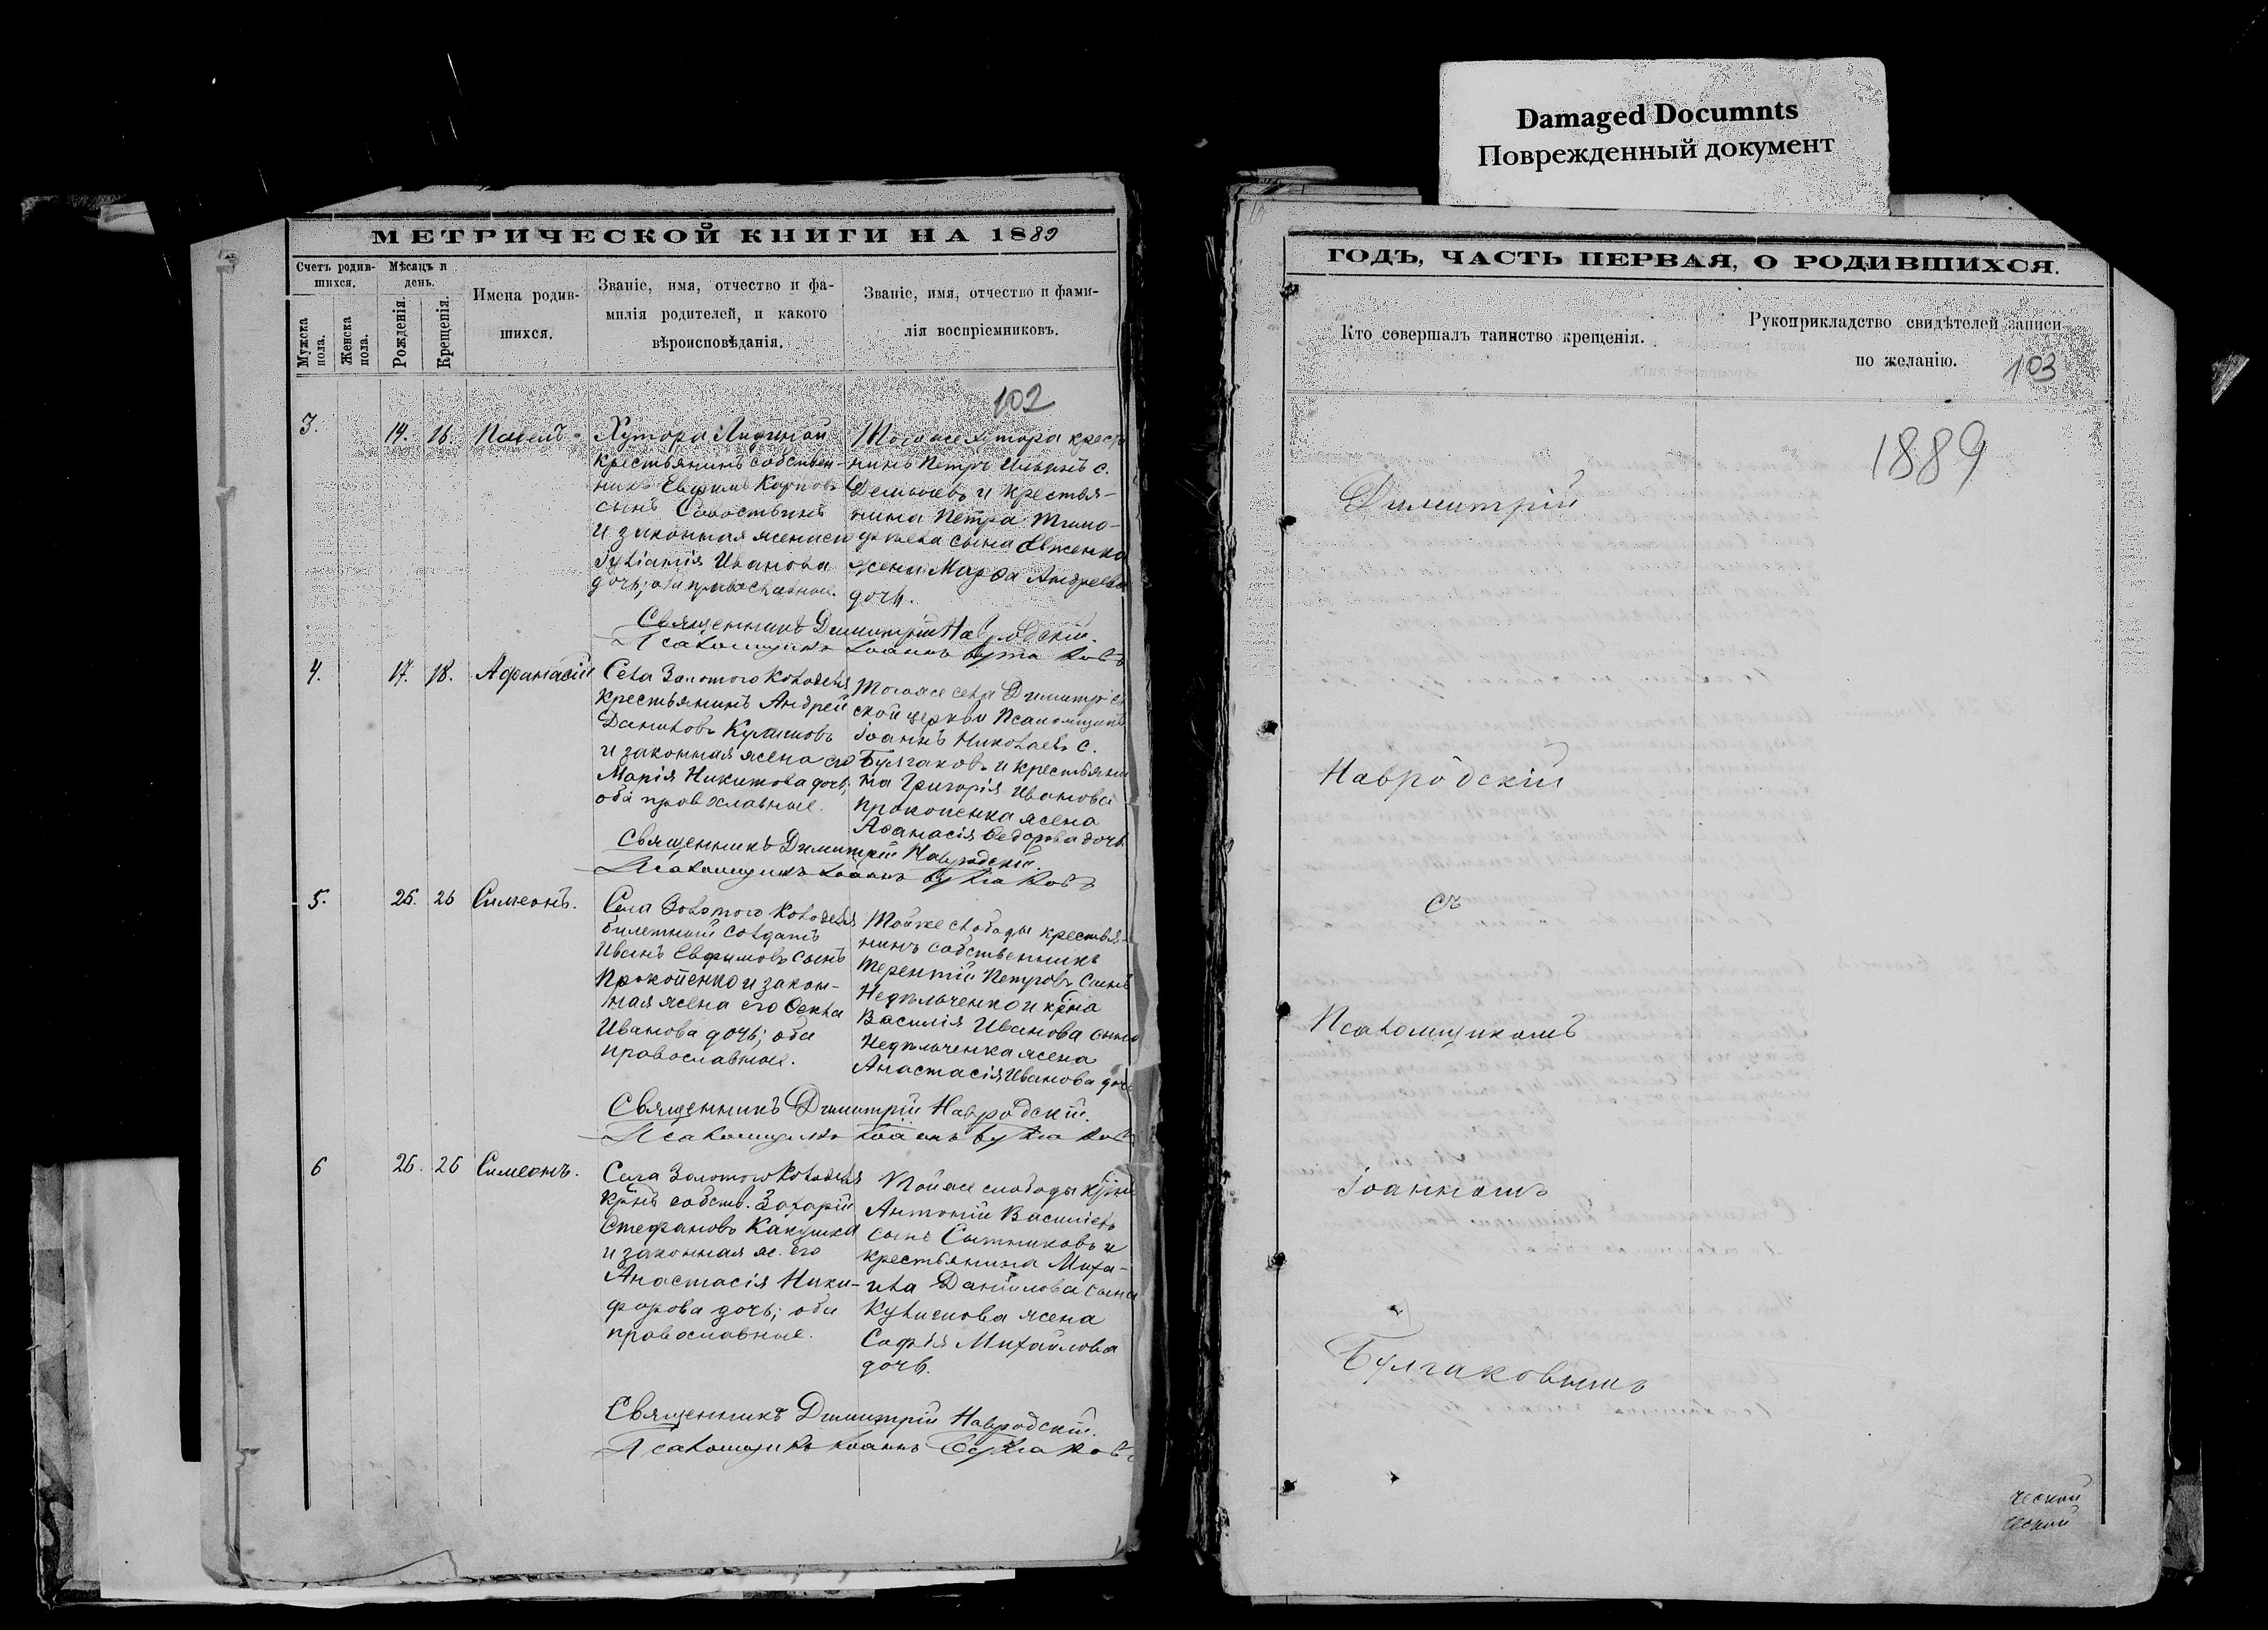 Damaged Documnts
Поврежденный документ
МЕТРИЧЕСКОЙ КНИГИ НА 1889
Счетъ родив-
шихся.
Мѣсяцъ и
день.
Мужска
пола.
Женска
пола.
Рожденія.
Крещенія.
Имена родив-
шихся.
Званіе, имя, отчество и фа-
милія родителей, и какого
вѣроисповѣданія.
Званіе, имя, отчество и фами-
лія воспріемниковъ.
102
3.
14. 16. Павелъ
Хутора
крестьянинъ собствен-
никъ Евфимъ Карповъ
сынъ
и законная жена его
Иванова
дочь; оба православные.
Тогоже хутора кресть
нинъ Петръ с.
и крестья-
нина Петра Тимо-
сына
жена Марфа Андреева
дочь.
Священникъ Димитрій Навродскій.
Псаломщикъ Іоаннъ Булгаковъ
4. 17. 18. Афанасій
Села Золотого Колодезя
крестьянинъ Андрей
Даниловъ
и законная жена его
Марія Никитова дочь;
оба православные.
Тогоже села Димитріев
ской церкви Псаломщикъ
Іоаннъ Николаевъ с.
Булгаковъ и крестьяни
на Григорія Иванова
Прокопенка жена
Аѳанасія Ѳедорова дочь
Священникъ Димитрій Навродскій.
Псаломщикъ Іоаннъ Булгаковъ
5. 25. 26 Симеонъ.
Села Золотого Колодезя
билетный солдатъ
Иванъ Евфимовъ сынъ
Прокопенко и закон-
ная жена его Ѳекла
Иванова дочь; оба
православные.
Тойже слободы крестья-
нинъ собственникъ
Терентій Петровъ сынъ
Недѣльченко и крна
Василія Иванова сына
Недѣльченка жена
Анастасія Иванова дочь
Священникъ Димитрій Навродскій.
Псаломщикъ Іоаннъ Булгаковъ
6 25. 26 Симеонъ.
Села Золотого Колодезя
крнъ собств. Захарій
Стефановъ
и законная ж. его
Анастасія Ники-
форова дочь; оба
православные.
Тойже слободы крнъ
Антоній Василіевъ
сынъ Сытниковъ и
крестьянина Миха-
ила Даниилова сына
жена
Софія Михайлова
дочь.
Священникъ Димитрій Навродскій.
Псаломщикъ Іоаннъ Булгаковъ
ГОДЪ, ЧАСТЬ ПЕРВАЯ, О РОДИВШИХСЯ.
Кто совершалъ таинство крещенія.
Рукоприкладство свидѣтелей записи
по желанію.
103
1889
Димитрій
Навродскій
съ
Псаломщикомъ
Іоанномъ
Булгаковымъ
ческой
ческой